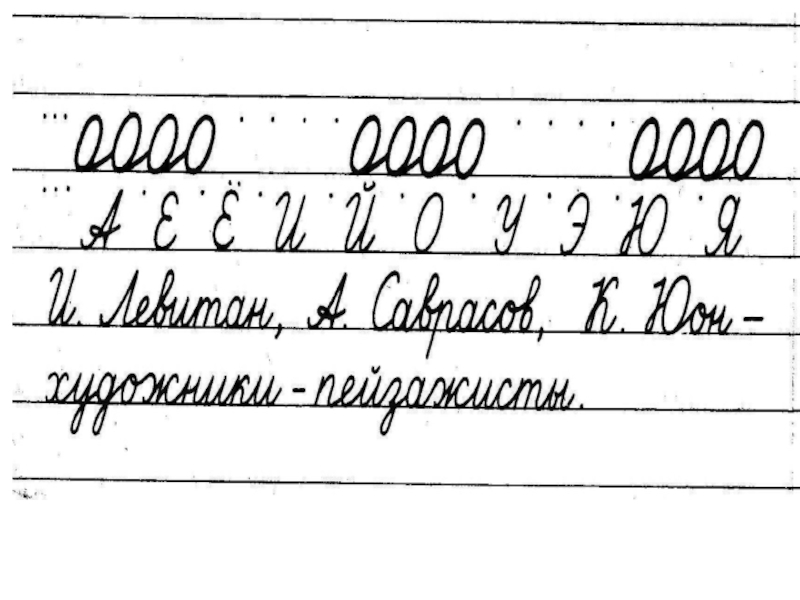 ОООО ОООО ОООО
А Е Ё И Й О У Э Ю Я
И. Левитан, А. Саврасов, К. Юон –
художники - пейзажисты.